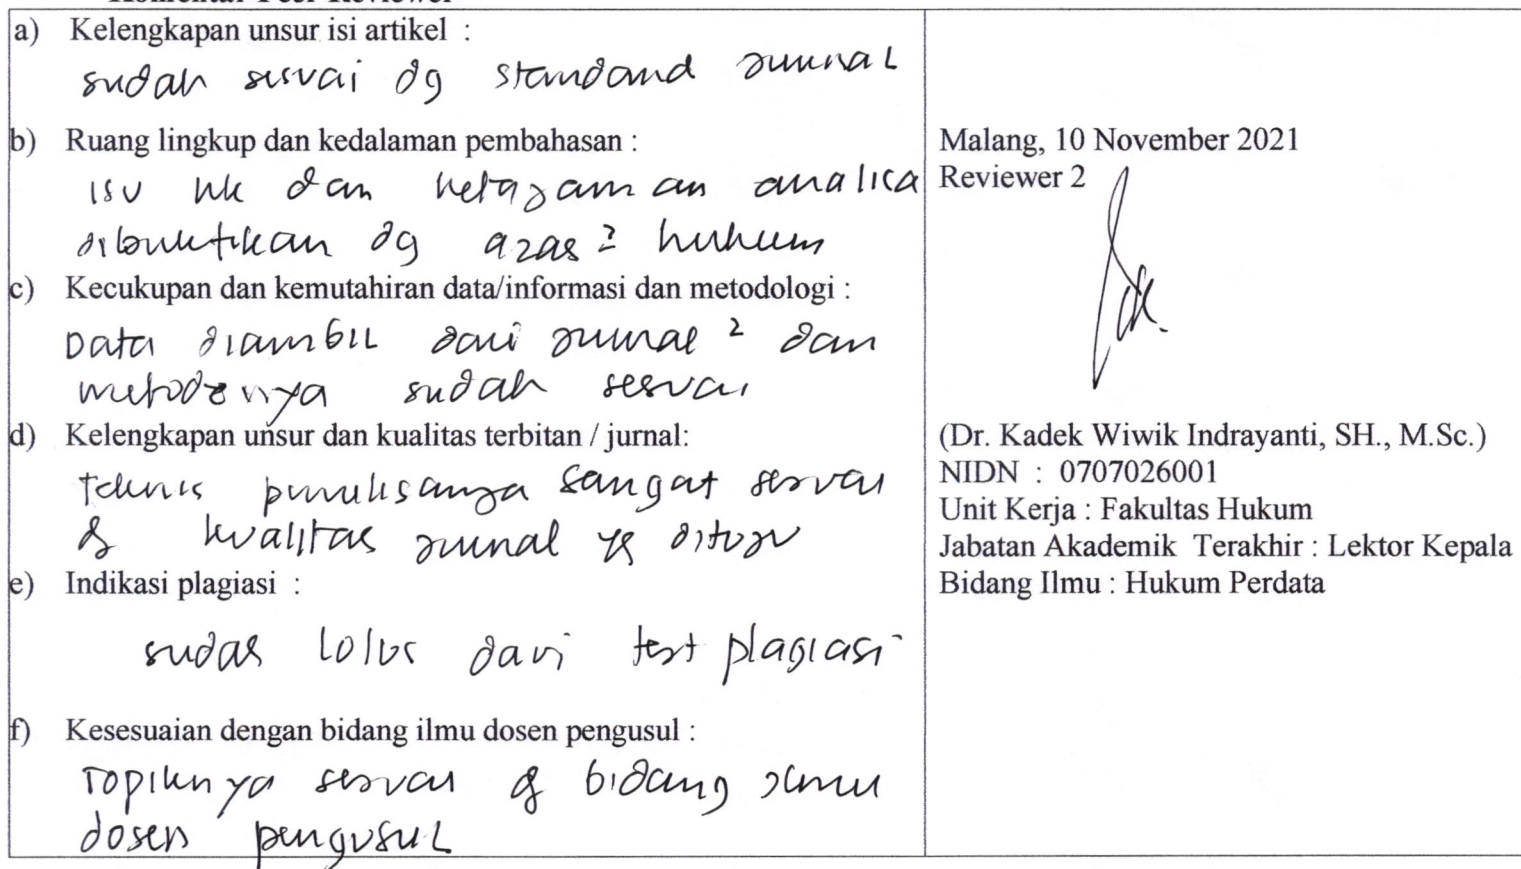 a) Kelengkapan unsur isi artikel :
sudah sesuai dg standard jurnal
b) Ruang lingkup dan kedalaman pembahasan :
isu hk dan ketajaman analisa
dibuktikan dg azas2 hukum
c) Kecukupan dan kemutahiran data/informasi dan metodologi :
Data diambil dari jurnal2 dan
metodenya sudah sesuai
d) Kelengkapan unsur dan kualitas terbitan / jurnal:
teknis penulisanya sangat sesuai
dg kualitas jurnal yg dituju
e) Indikasi plagiasi :
sudah lolos dari test plagiasi
f) Kesesuaian dengan bidang ilmu dosen pengusul :
Topiknya sesuai dg bidang ilmu
dosen pengusul
Malang, 10 November 2021
Reviewer 2
(Dr. Kadek Wiwik Indrayanti, SH., M.Sc.)
NIDN : 0707026001
Unit Kerja : Fakultas Hukum
Jabatan Akademik Terakhir : Lektor Kepala
Bidang Ilmu : Hukum Perdata